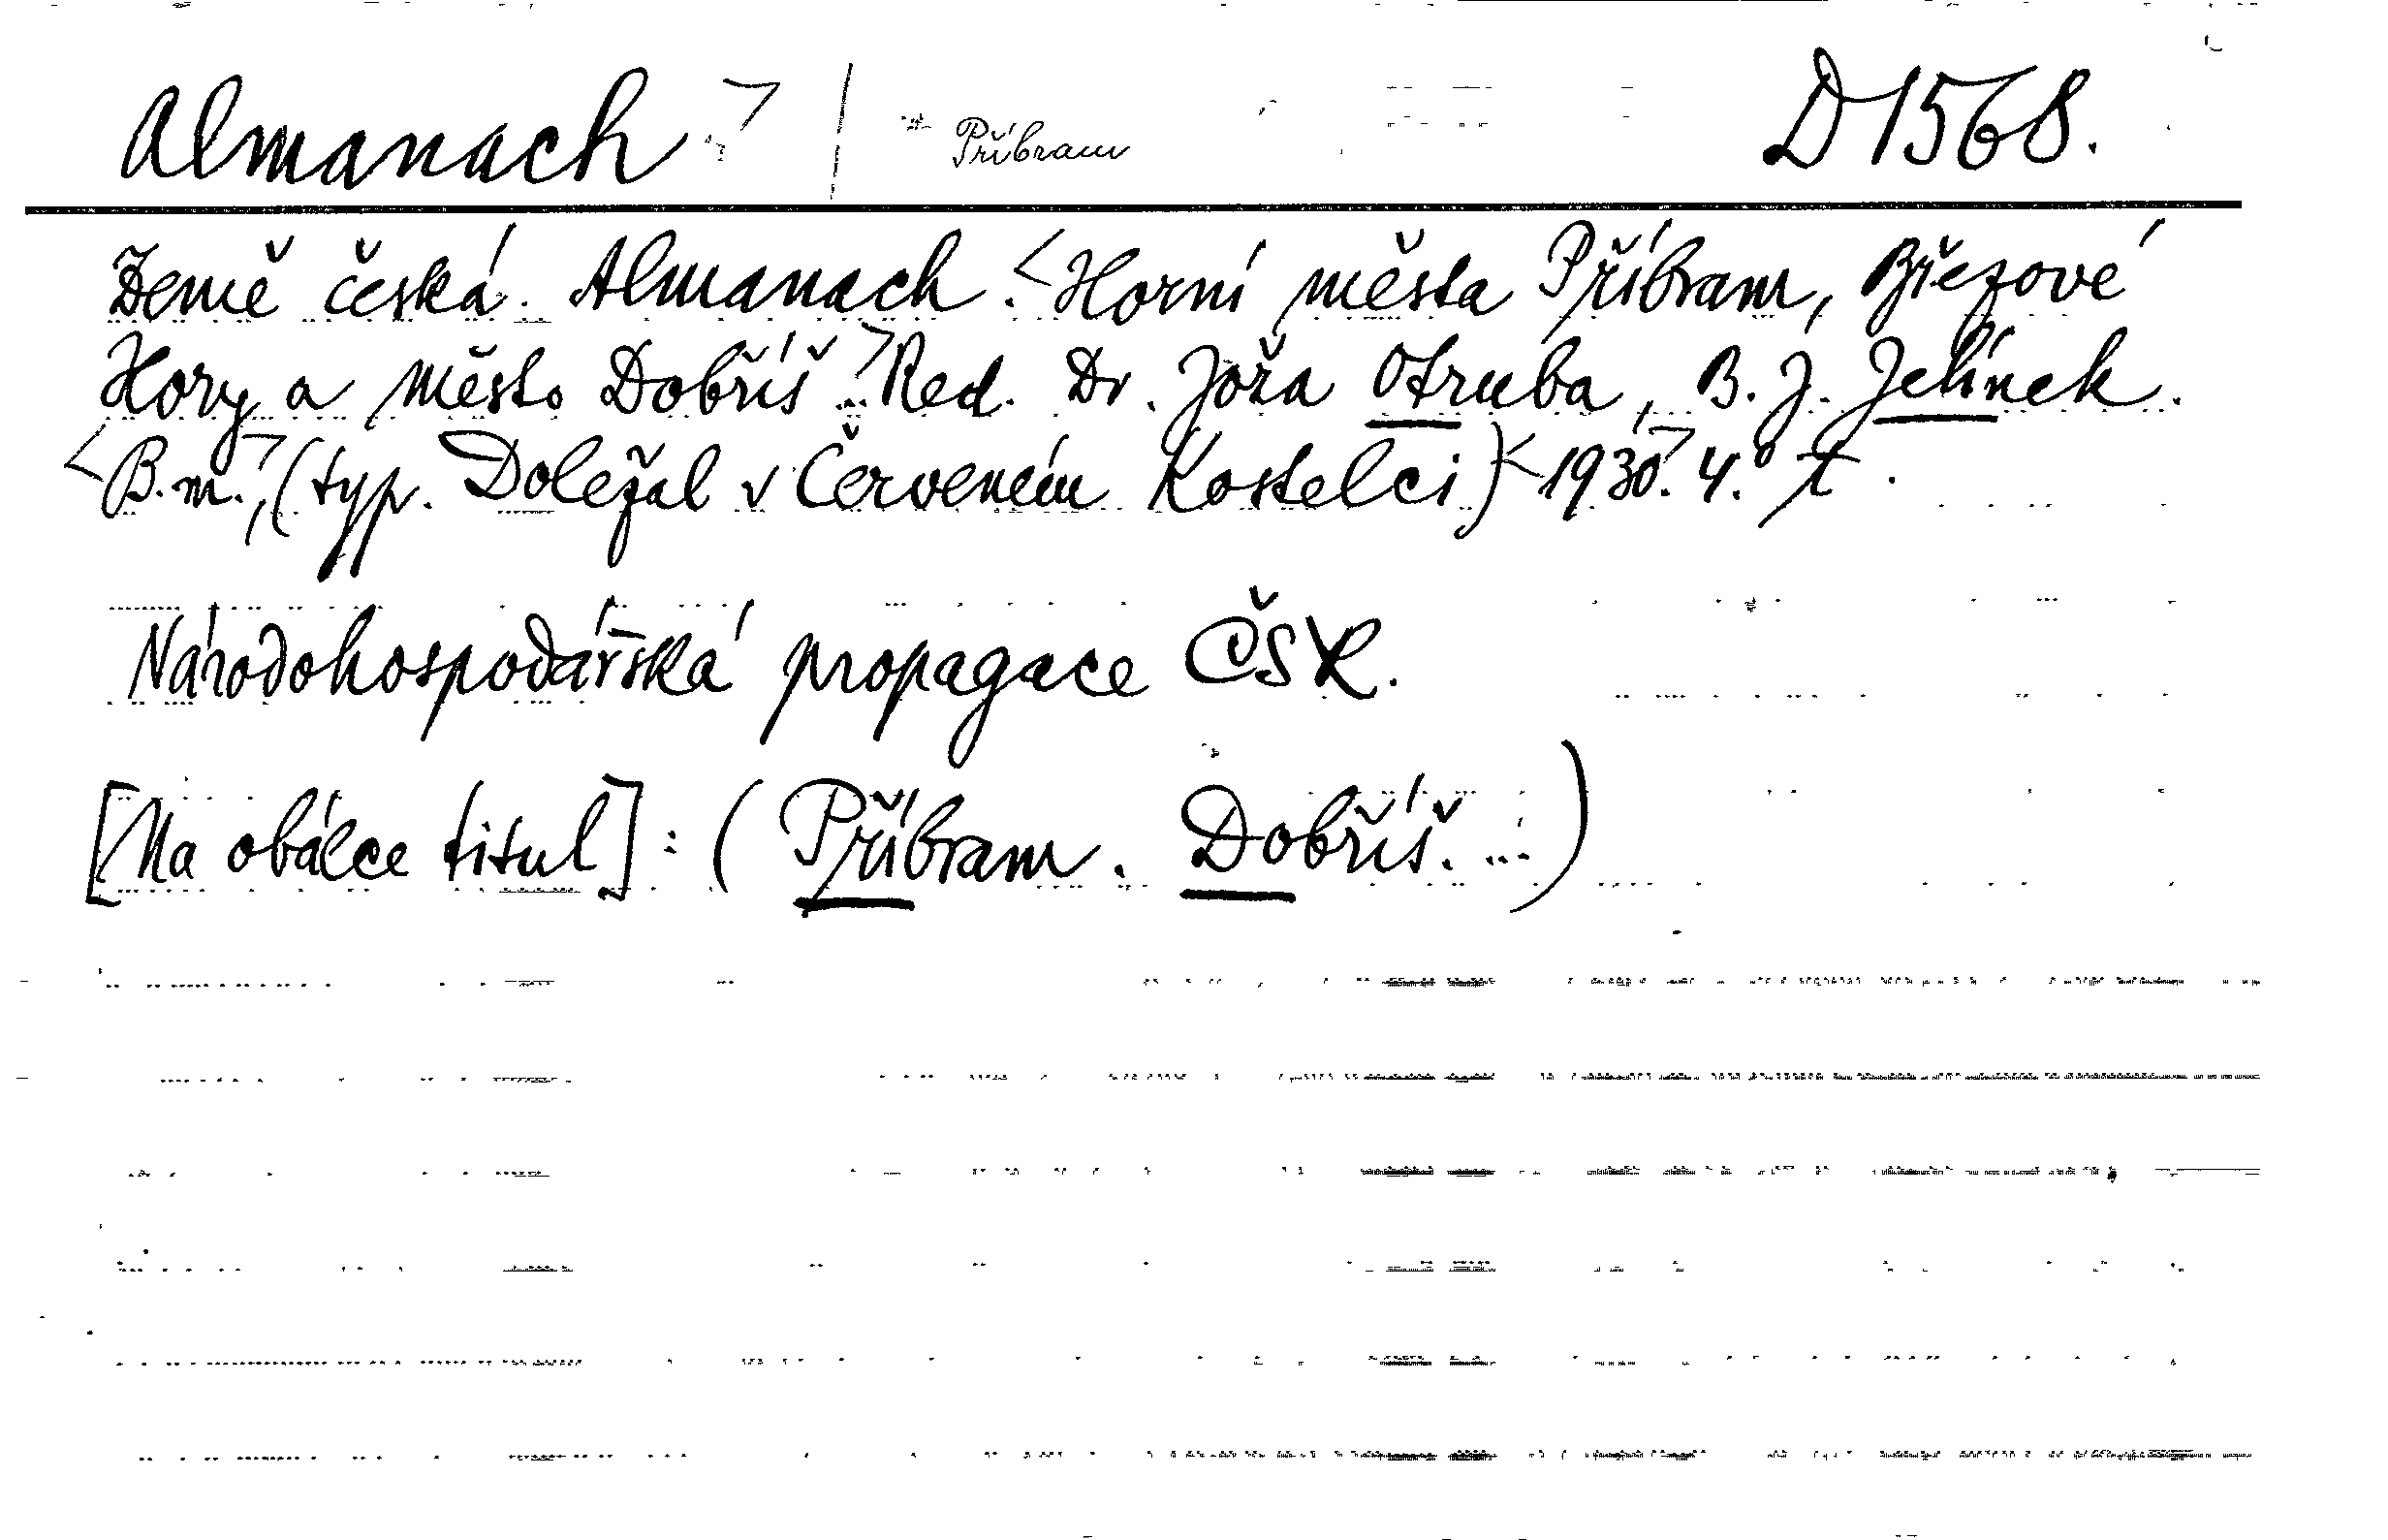 Almanach > Příbram D 1568.
Země česká. Almanach. <Horní města Příbram, Březové
Hory a město Dobříš...> Red. Dr. Joža Otruba, B. J. Jelínek.
<B.m.>, (typ. Doležal v Červeném Kostelci) <1930>. 4.°
Národohospodářská propagace ČSR.
[Na obálce titul]: (Příbram. Dobříš. ...)